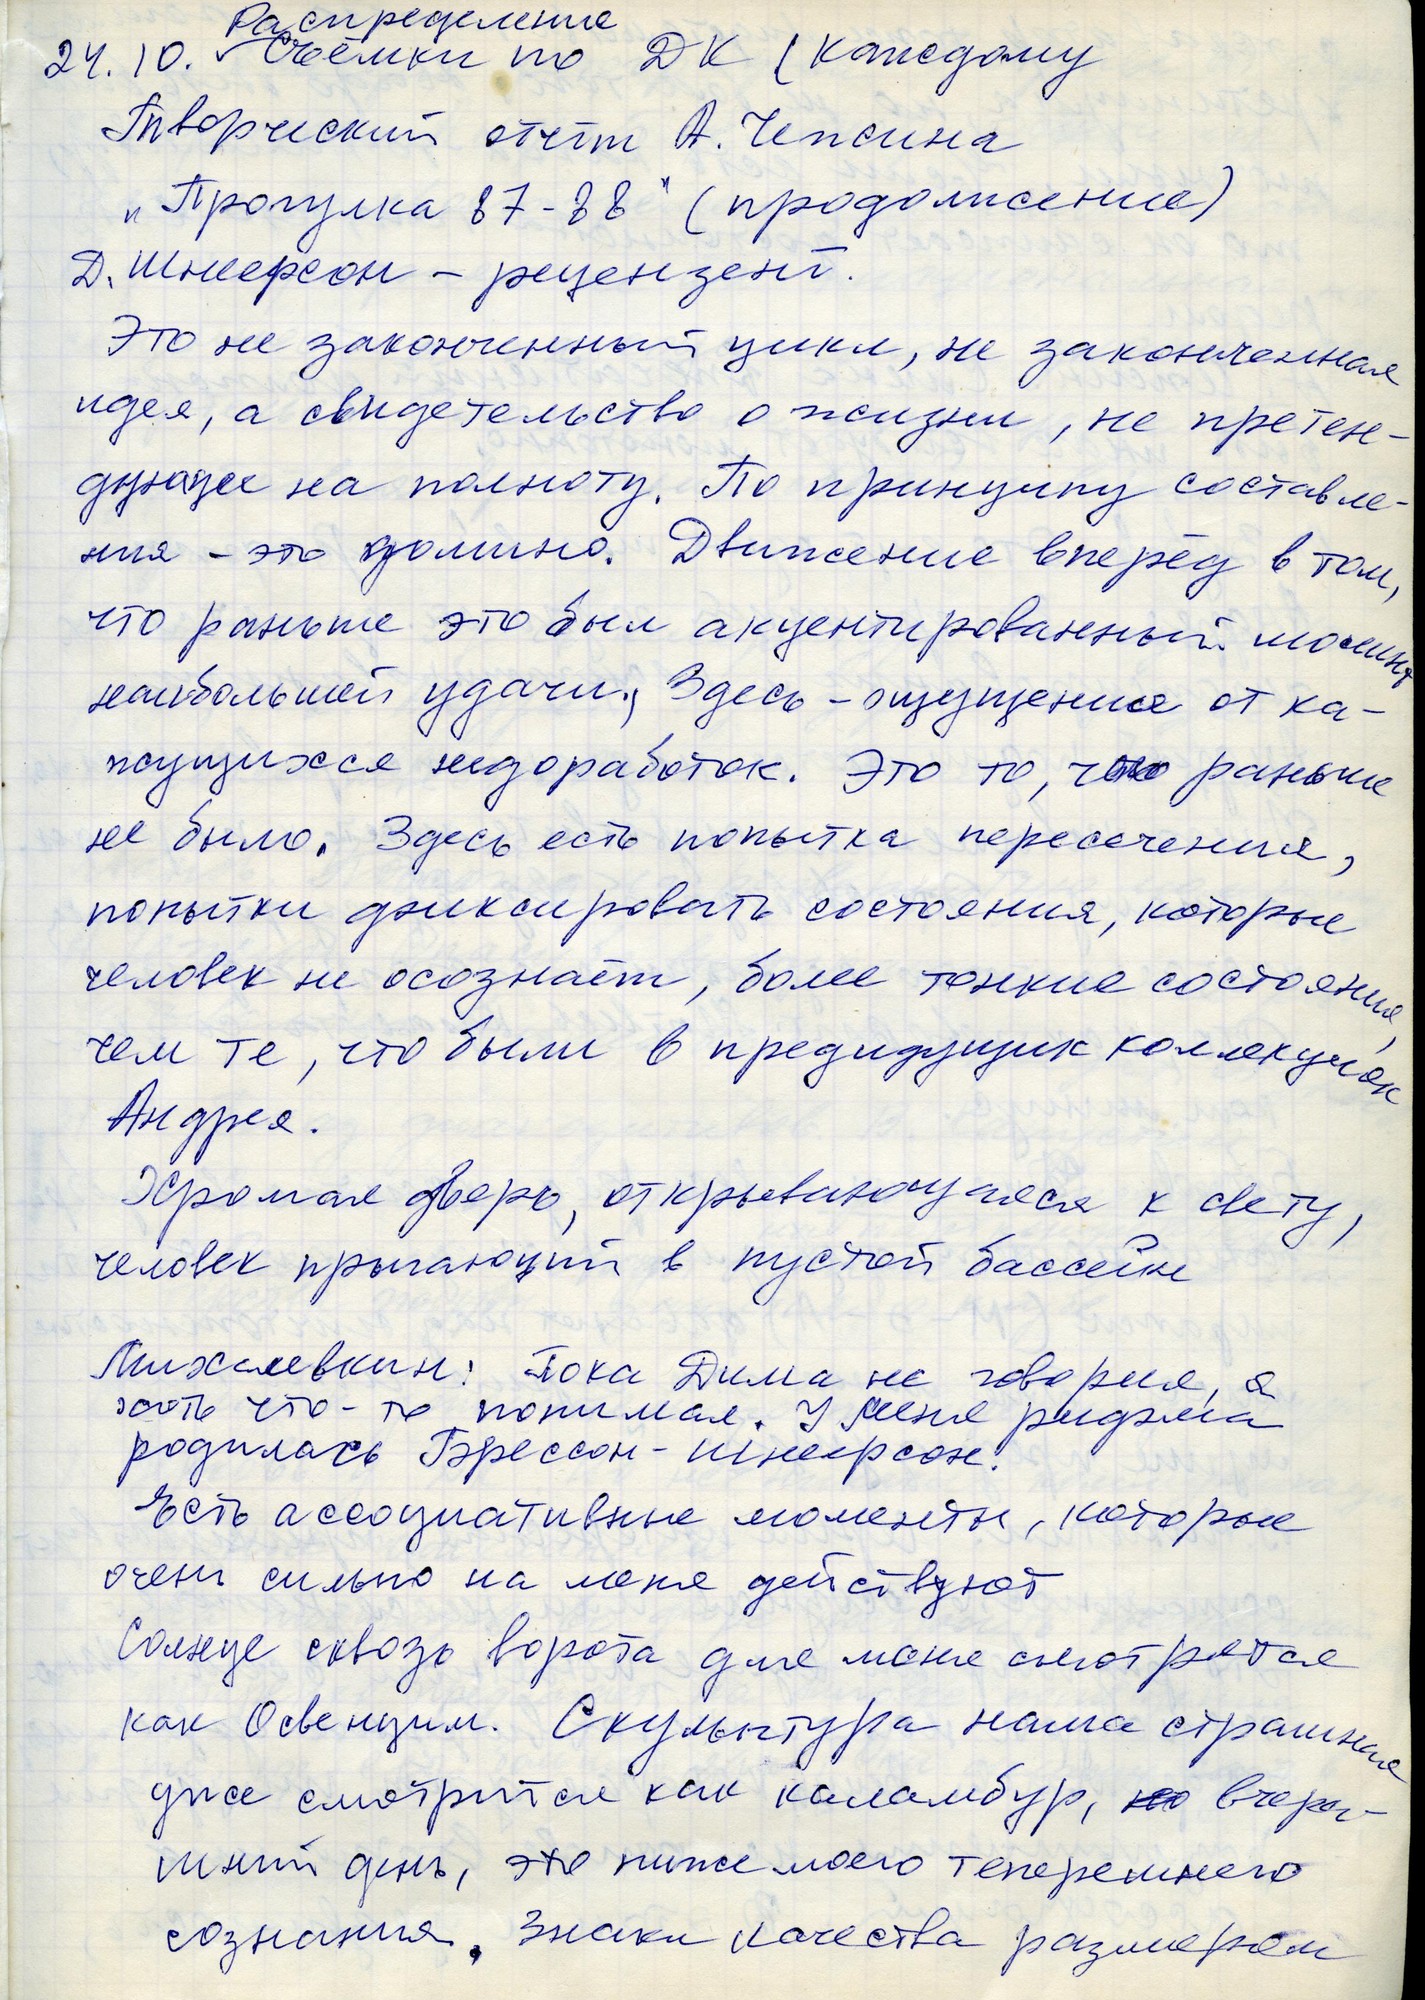 Распределение
24.10. Съёмки по ДК (каждому
Творческий отчёт А. Чежина
„Прогулка 87-88" (продолжение)
Д. Шнеерсон - рецензент.
Это не законченный цикл, не законченная
идея, а свидетельство о жизни, не претен-
дующее на полноту. По принципу составле-
ния - это домино. Движение вперёд в том,
что раньше это был акцентированный момент
наибольшей удачи, Здесь - ощущение от ка-
жущихся недоработок. Это то, что раньше
не было. Здесь есть попытка пересечения,
попытки фиксировать состояния, которые
человек не осознаёт, более тонкие состояния,
чем те, что были в предидущих коллекциях
Андрея.
Хромая дверь, открывающаяся к свету,
человек прыгающий в пустой бассейн
Михалевкин: Пока Дима не говорил, я
хоть что-то понимал. У меня рифма
родилась Брессон - Шнеерсон.
Есть ассоциативные моменты, которые
очень сильно на меня действуют
Солнце сквозь ворота для меня смотрятся
как Освенцим. Скульптура наша страшная
уже смотрится как каламбур, вчера-
шний день, это ниже моего теперешнего
сознания. Знаки качества размером